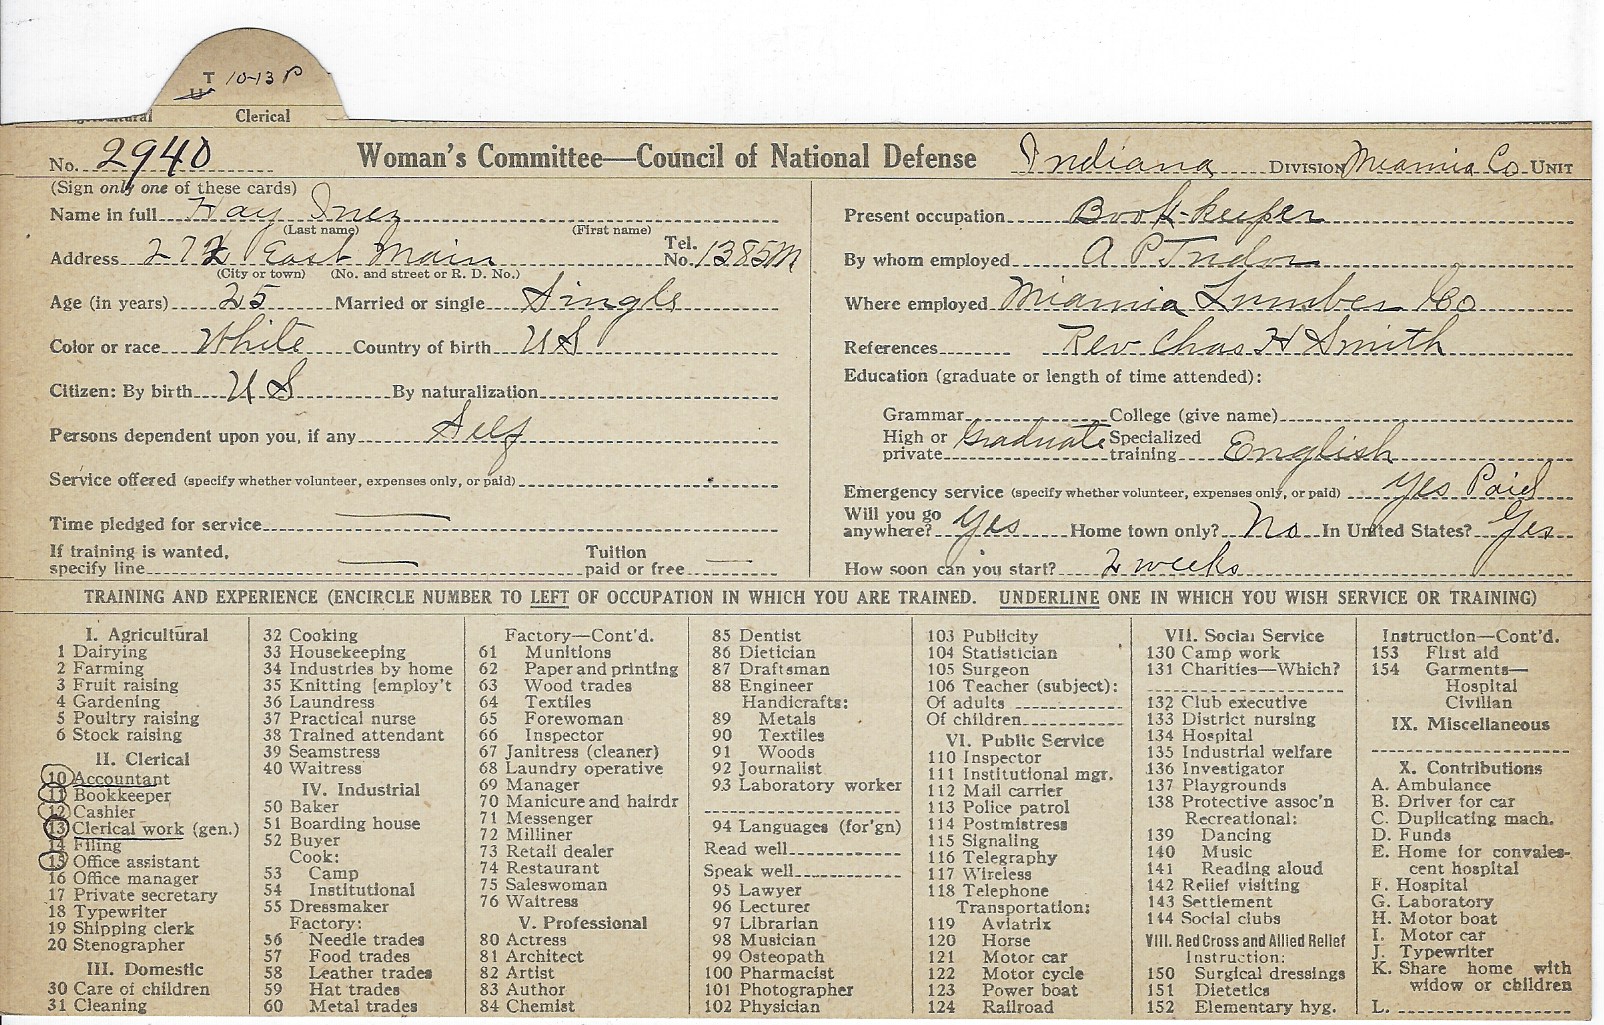 T 10-13 P
Clerical
No. 2940 Woman's Committee—Council of National Defense Indiana DIVISION Miamia Co UNIT
(Sign only one of these cards)
Name in full Hay Inez
(Last name) (First name)
Address 272 East Main Tel. No. 1385M
(City or town) (No. and street or R. D. No.)
Age (in years) 25 Married or single Single
Color or race White Country of birth US
Citizen: By birth US By naturalization
Persons dependent upon you, if any Self
Service offered (specify whether volunteer, expenses only, or paid)
Time pledged for service
If training is wanted, specify line Tuition paid or free
Present occupation Book-keeper
By whom employed A P Tudor
Where employed Miamia Lumber Co
References Rev Chas H Smith
Education (graduate or length of time attended):
Grammar College (give name)
High or private Graduate Specialized training English
Emergency service (specify whether volunteer, expenses only, or paid) Yes Paid
Will you go anywhere? Yes Home town only? No In United States? Yes
How soon can you start? 2 weeks
TRAINING AND EXPERIENCE (ENCIRCLE NUMBER TO LEFT OF OCCUPATION IN WHICH YOU ARE TRAINED. UNDERLINE ONE IN WHICH YOU WISH SERVICE OR TRAINING)
I. Agricultural
1 Dairying
2 Farming
3 Fruit raising
4 Gardening
5 Poultry raising
6 Stock raising
II. Clerical
10 Accountant
11 Bookkeeper
12 Cashier
13 Clerical work (gen.)
14 Filing
15 Office assistant
16 Office manager
17 Private secretary
18 Typewriter
19 Shipping clerk
20 Stenographer
III. Domestic
30 Care of children
31 Cleaning
32 Cooking
33 Housekeeping
34 Industries by home
35 Knitting [employ't
36 Laundress
37 Practical nurse
38 Trained attendant
39 Seamstress
40 Waitress
IV. Industrial
50 Baker
51 Boarding house
52 Buyer
Cook:
53 Camp
54 Institutional
55 Dressmaker
Factory:
56 Needle trades
57 Food trades
58 Leather trades
59 Hat trades
60 Metal trades
Factory—Cont'd.
61 Munitions
62 Paper and printing
63 Wood trades
64 Textiles
65 Forewoman
66 Inspector
67 Janitress (cleaner)
68 Laundry operative
69 Manager
70 Manicure and hairdr
71 Messenger
72 Milliner
73 Retail dealer
74 Restaurant
75 Saleswoman
76 Waitress
V. Professional
80 Actress
81 Architect
82 Artist
83 Author
84 Chemist
85 Dentist
86 Dietician
87 Draftsman
88 Engineer
Handicrafts:
89 Metals
90 Textiles
91 Woods
92 Journalist
93 Laboratory worker
94 Languages (for'gn)
Read well
Speak well
95 Lawyer
96 Lecturer
97 Librarian
98 Musician
99 Osteopath
100 Pharmacist
101 Photographer
102 Physician
103 Publicity
104 Statistician
105 Surgeon
106 Teacher (subject):
Of adults
Of children
VI. Public Service
110 Inspector
111 Institutional mgr.
112 Mail carrier
113 Police patrol
114 Postmistress
115 Signaling
116 Telegraphy
117 Wireless
118 Telephone
Transportation:
119 Aviatrix
120 Horse
121 Motor car
122 Motor cycle
123 Power boat
124 Railroad
VII. Social Service
130 Camp work
131 Charities—Which?
132 Club executive
133 District nursing
134 Hospital
135 Industrial welfare
136 Investigator
137 Playgrounds
138 Protective assoc'n
Recreational:
139 Dancing
140 Music
141 Reading aloud
142 Relief visiting
143 Settlement
144 Social clubs
VIII. Red Cross and Allied Relief
Instruction:
150 Surgical dressings
151 Dietetics
152 Elementary hyg.
Instruction—Cont'd.
153 First aid
154 Garments—
Hospital
Civilian
IX. Miscellaneous
X. Contributions
A. Ambulance
B. Driver for car
C. Duplicating mach.
D. Funds
E. Home for convales-
cent hospital
F. Hospital
G. Laboratory
H. Motor boat
I. Motor car
J. Typewriter
K. Share home with
widow or children
L.